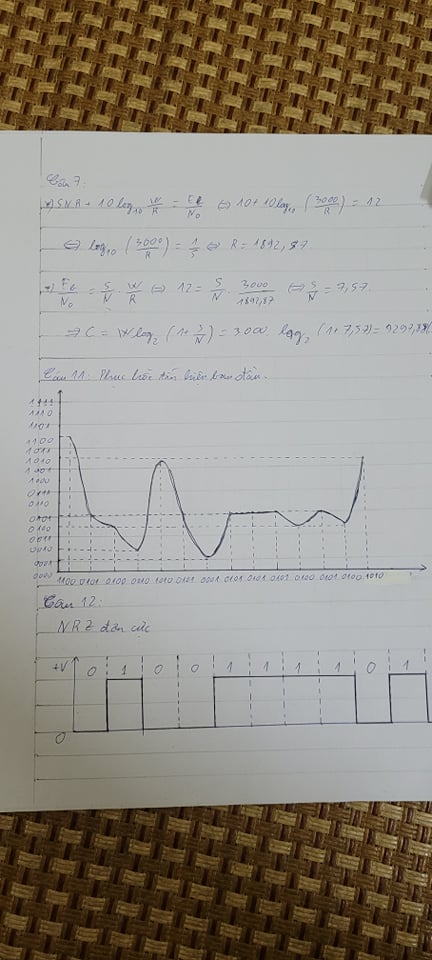 Câu 7:
*) SNR + 10 log₁₀ W/R = Eb/N₀ ⇔ 10 + 10 log₁₀ (3000/R) = 12
⇔ log₁₀ (3000/R) = 1/5 ⇔ R = 1892,87.
*) Eb/N₀ = S/N . W/R ⇔ 12 = S/N . 3000/1892,87 ⇔ S/N = 7,57.
⇒ C = W log₂ (1 + S/N) = 3000. log₂ (1 + 7,57) = 9297,88
Câu 11: Phục hồi tín hiệu ban đầu.
1111
1110
1101
1100
1011
1010
1001
1000
0111
0110
0101
0100
0011
0010
0001
0000
1100 0101 0100 0010 1010 0101 0001 0101 0101 0101 0100 0101 0100 1010
Câu 12:
NRZ đơn cực
+V 0 1 0 0 1 1 1 1 0 1
0